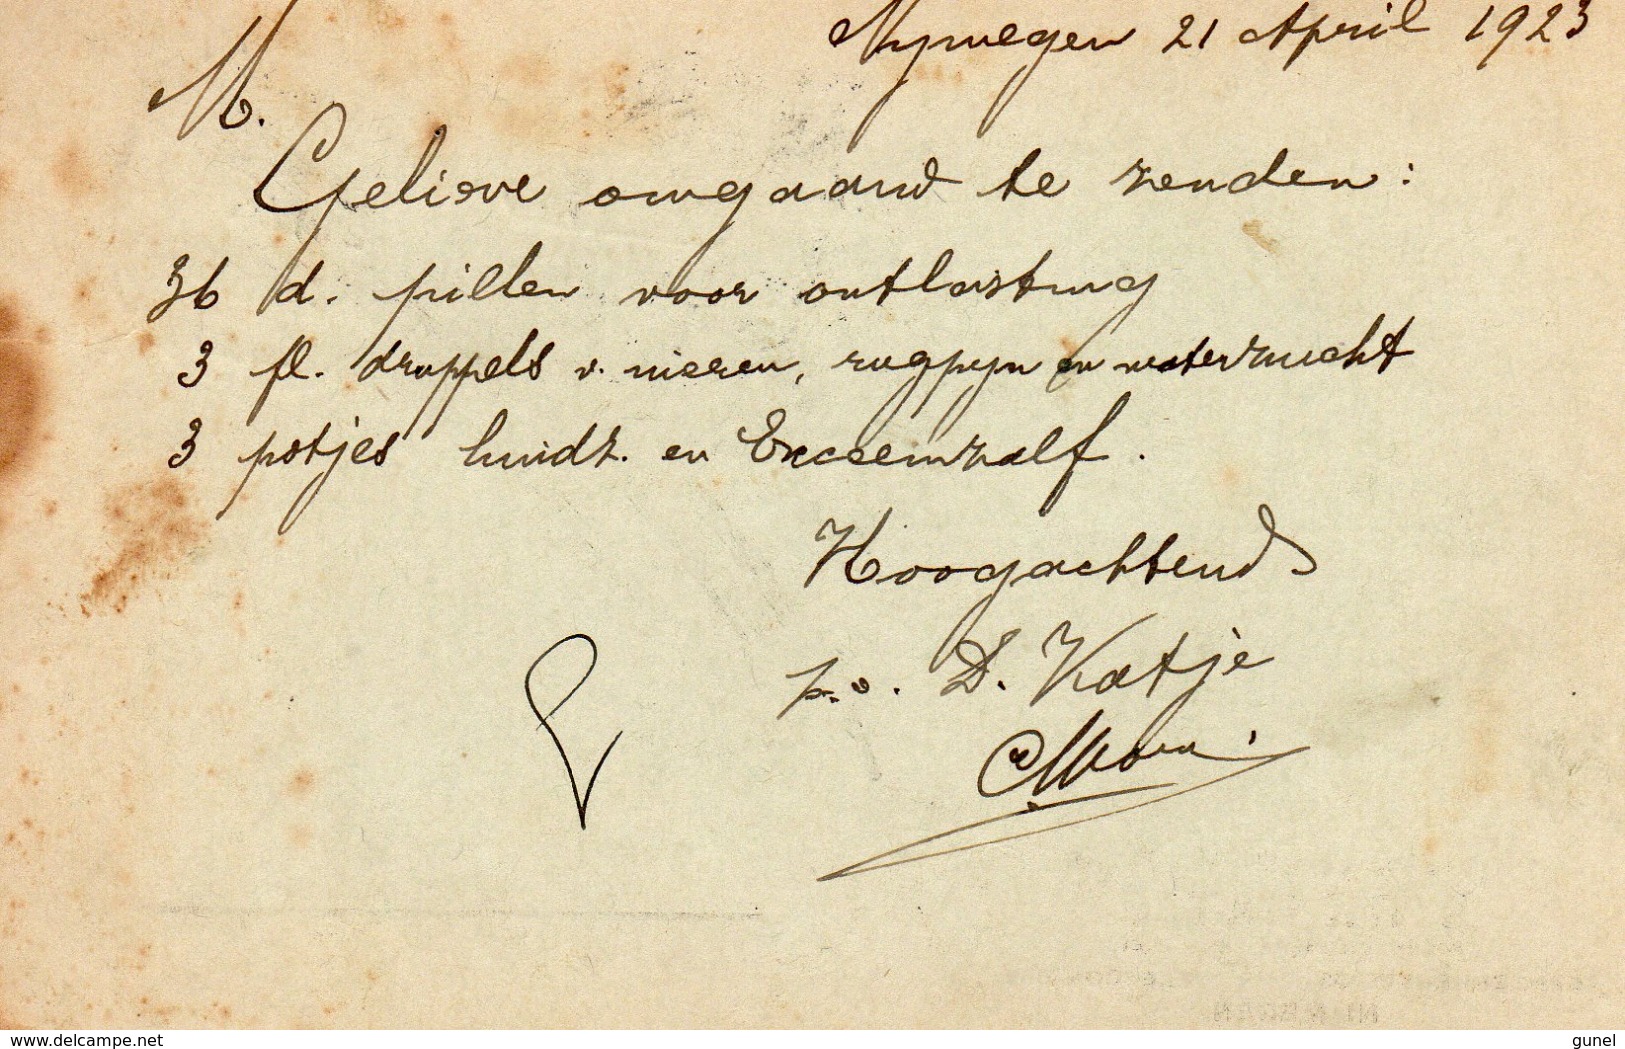 Nymegen 21 April 1923
M.
Gelieve omgaand te zenden:
36 d. pillen voor ontlasting
3 fl. druppels v. nieren, rugpyn en waterzucht
3 potjes huidz. en Exceemzalf.
Hoogachtend
p.o. D. Katje
delcampe.net
gunel